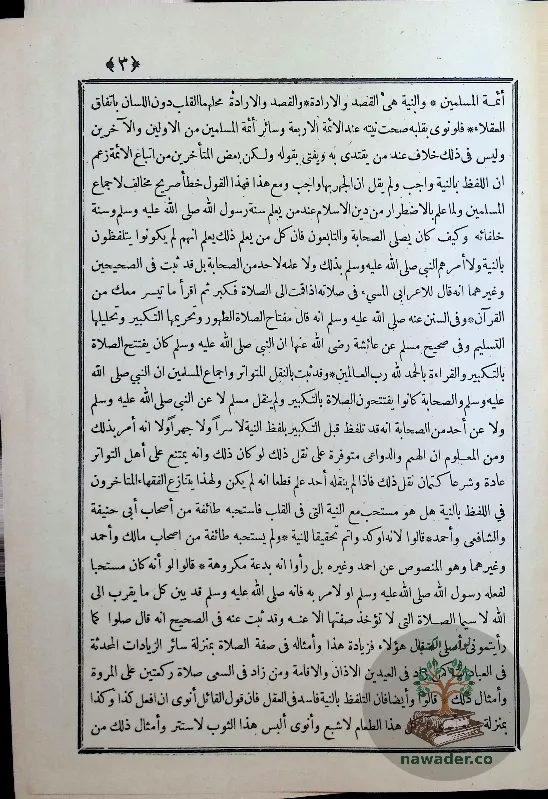 ﴿٣﴾
أئمة المسلمين * والنية هى القصد والارادة * والقصد والارادة محلهما القلب دون اللسان باتفاق
العقلاء * فلو نوى بقلبه صحت نيته عند الائمة الاربعة وسائر أئمة المسلمين من الاولين والآخرين
وليس فى ذلك خلاف عند من يقتدى به ويفتى بقوله ولكن بعض المتأخرين من اتباع الائمة زعم
ان اللفظ بالنية واجب ولم يقل ان الجهر بها واجب ومع هذا فهذا القول خطأ صريح مخالف لاجماع
المسلمين ولما علم بالاضطرار من دين الاسلام عند من يعلم سنة رسول الله صلى الله عليه وسلم وسنة
خلفائه وكيف كان يصلى الصحابة والتابعون فان كل من يعلم ذلك يعلم انهم لم يكونوا يتلفظون
بالنية ولا أمرهم النبي صلى الله عليه وسلم بذلك ولا علمه لاحد من الصحابة بل قد ثبت فى الصحيحين
وغيرهما انه قال للاعرابى المسيء فى صلاته اذا قمت الى الصلاة فكبر ثم اقرأ ما تيسر معك من
القرآن * وفى السنن عنه صلى الله عليه وسلم انه قال مفتاح الصلاة الطهور وتحريمها التكبير وتحليلها
التسليم وفى صحيح مسلم عن عائشة رضى الله عنها ان النبي صلى الله عليه وسلم كان يفتتح الصلاة
بالتكبير والقراءة بالحمد لله رب العالمين * وقد ثبت بالنقل المتواتر واجماع المسلمين ان النبي صلى الله
عليه وسلم والصحابة كانوا يفتتحون الصلاة بالتكبير ولم ينقل مسلم لا عن النبي صلى الله عليه وسلم
ولا عن أحد من الصحابة انه قد تلفظ قبل التكبير بلفظ النية لا سراً ولا جهراً ولا انه أمر بذلك
ومن المعلوم ان الهمم والدواعى متوفرة على نقل ذلك لو كان ذلك وانه يمتنع على أهل التواتر
عادة وشرعا كتمان نقل ذلك فاذا لم ينقله أحد علم قطعا انه لم يكن ولهذا يتنازع الفقهاء المتأخرون
في اللفظ بالنية هل هو مستحب مع النية التى فى القلب فاستحبه طائفة من أصحاب أبى حنيفة
والشافعى وأحمد * قالوا لانه أوكد وأتم تحقيقا للنية * ولم يستحبه طائفة من اصحاب مالك وأحمد
وغيرهما وهو المنصوص عن احمد وغيره بل رأوا انه بدعة مكروهة * قالوا لو أنه كان مستحبا
لفعله رسول الله صلى الله عليه وسلم او لامر به فانه صلى الله عليه وسلم قد بين كل ما يقرب الى
الله لا سيما الصلاة التى لا تؤخذ صفتها الا عنه وقد ثبت عنه فى الصحيح انه قال صلوا كما
رأيتمونى أصلى * قال هؤلاء فزيادة هذا وأمثاله فى صفة الصلاة بمنزلة سائر الزيادات المحدثة
فى العبادات كمن زاد فى العيدين الاذان والاقامة ومن زاد فى السعى صلاة ركعتين على المروة
وأمثال ذلك * قالوا وأيضا فان التلفظ بالنية فاسد فى العقل فان قول القائل أنوى ان افعل كذا وكذا
بمنزلة هذا الطعام لاشبع وأنوى ألبس هذا الثوب لاستتر وأمثال ذلك من
nawader.co